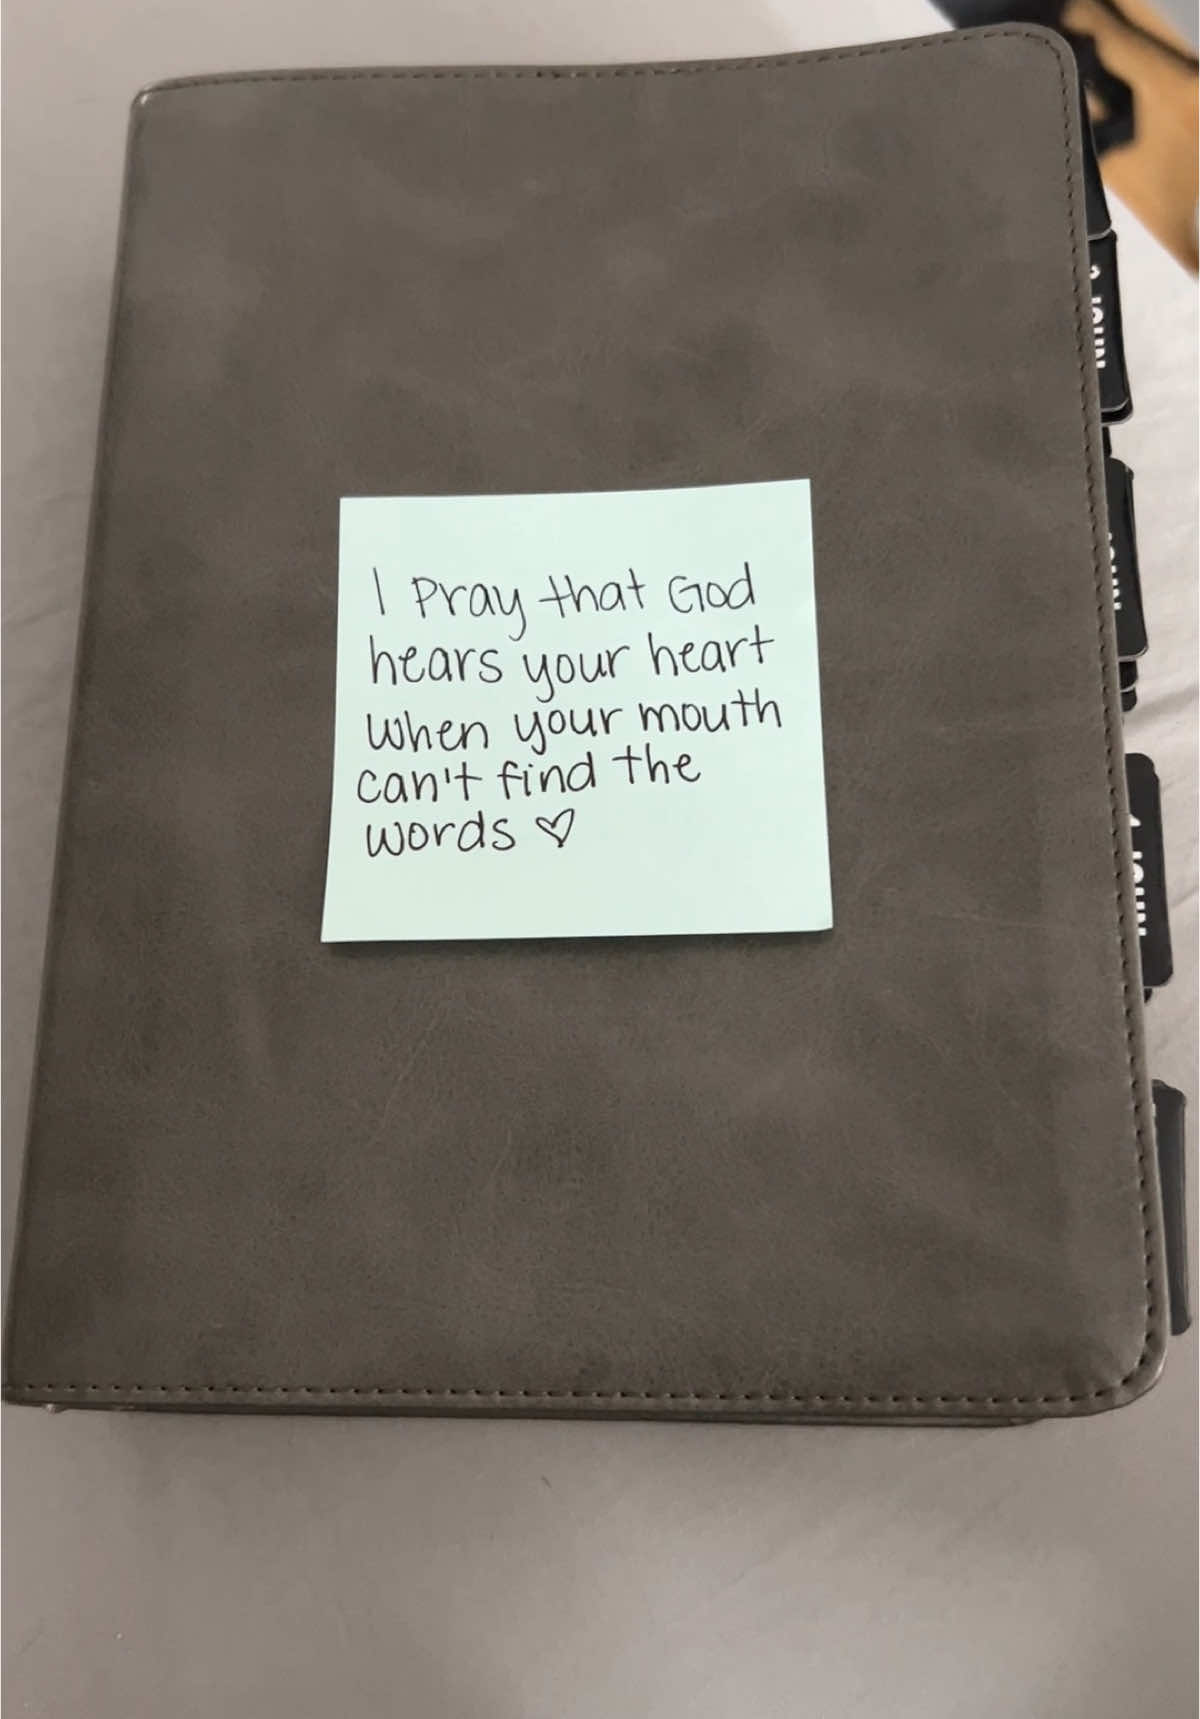 I Pray that God
hears your heart
when your mouth
can't find the
words ♡
JOHN
JOHN
JOHN